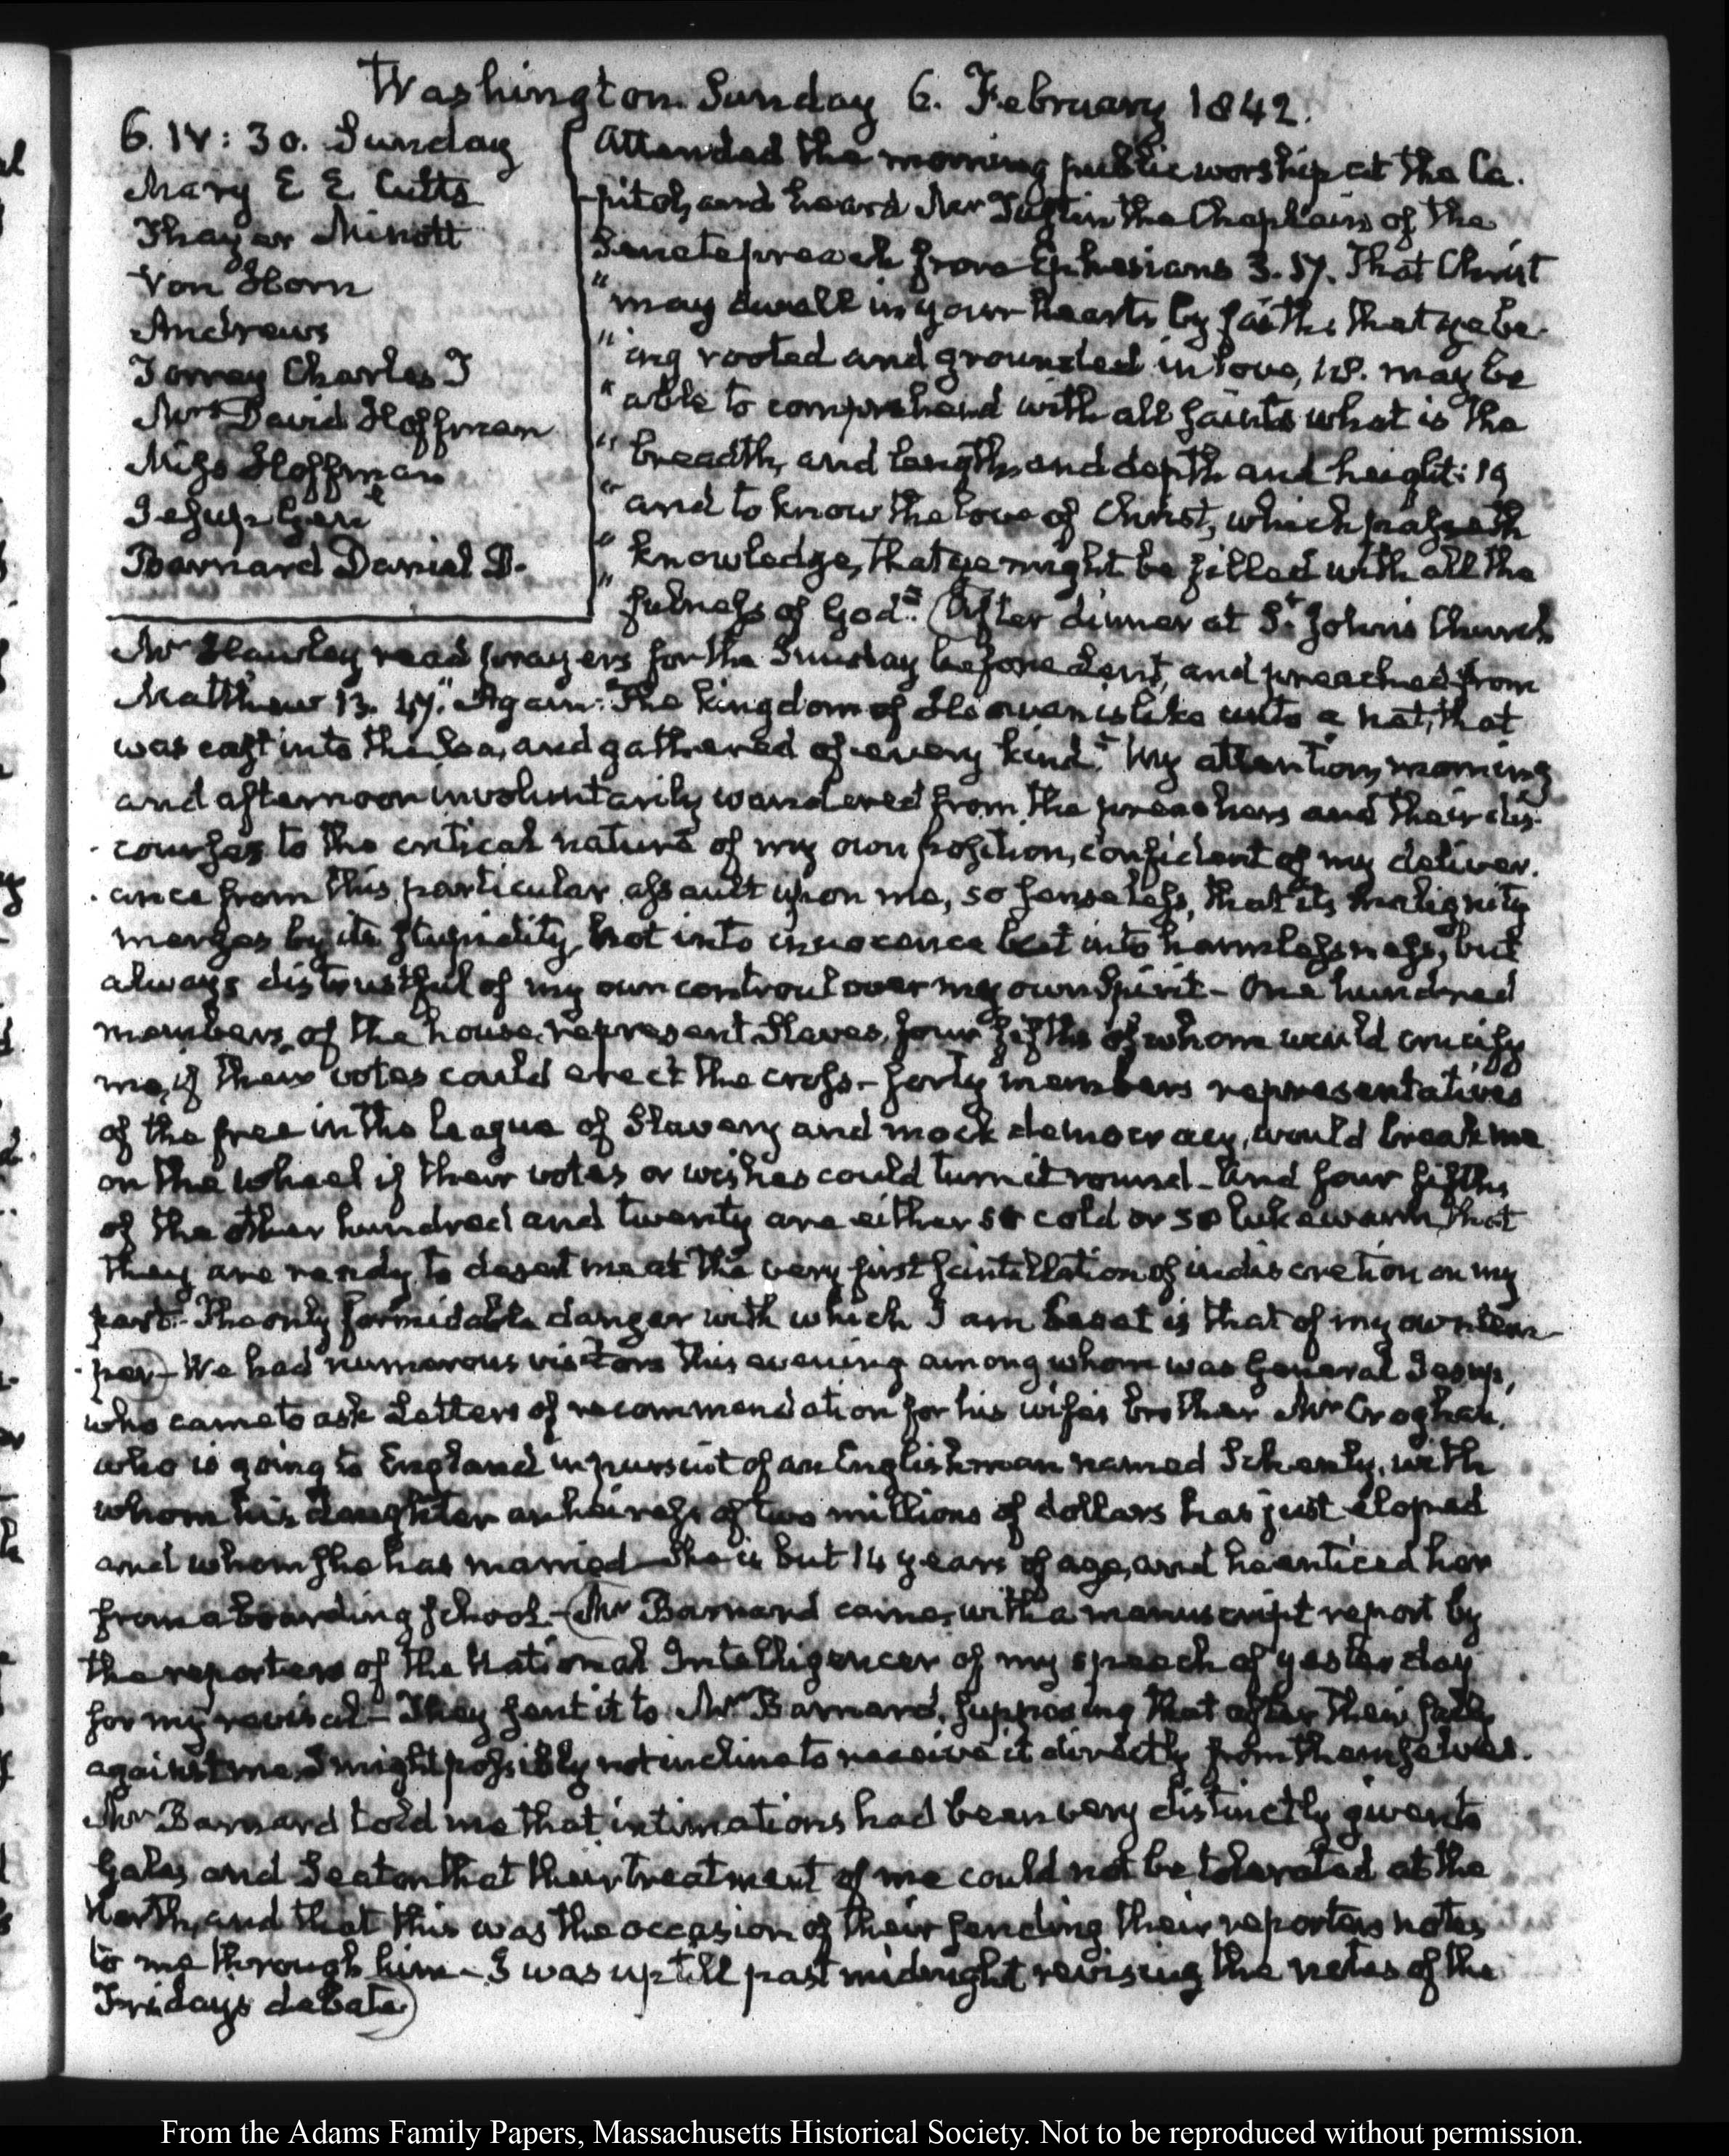 Washington Sunday 6. February 1842.
6. IV: 30. Sunday
Mary E E Cutts
Thayer Minott
Von Horn
Andrews
Torrey Charles T
Mrs David Hoffman
Miss Hoffman
Jesup Genl
Barnard Daniel D.
Attended the morning public worship at the Ca-
pitol, and heard Mr Tustin the Chaplain of the
Senate preach from Ephesians 3. 17. That Christ
"may dwell in your hearts by faith: that ye be-
"ing rooted and grounded in love, 18. may be
"able to comprehend with all saints what is the
"breadth, and length, and depth and height: 19
"and to know the love of Christ, which passeth
"knowledge, that ye might be filled with all the
"fulness of God." (After dinner at St. John's Church
Mr Hawley read prayers for the Sunday before Lent, and preached from
Matthew 13. 47. "Again: The kingdom of Heaven is like unto a net, that
was cast into the sea, and gathered of every kind." My attention, morning
and afternoon involuntarily wandered from the preachers and their dis-
courses to the critical nature of my own position, confident of my deliver-
ance from this particular assault upon me, so senseless, that its malignity
merges by its stupidity, not into innocence but into harmlessness, but
always distrustful of my own controul over my own Spirit - One hundred
members of the house represent Slaves, four fifths of whom would crucify
me, if their votes could erect the cross - forty members representatives
of the free in the league of Slavery and mock democracy, would break me
on the wheel if their votes or wishes could turn it round - And four fifths
of the other hundred and twenty are either so cold or so lukewarm, that
they are ready to desert me at the very first scintillation of indiscretion on my
part - The only formidable danger with which I am beset is that of my own tem-
per) - We had numerous visitors this evening among whom was General Jesup,
who came to ask Letters of recommendation for his wife's brother Mr Croghan,
who is going to England in pursuit of an Englishman named Schenly, with
whom his daughter an heiress of two millions of dollars has just eloped
and whom she has married - She is but 14 years of age, and he enticed her
from a boarding school - (Mr Barnard came, with a manuscript report by
the reporters of the National Intelligencer of my speech of yesterday
for my revisal - They sent it to Mr Barnard, supposing that after their
against me, I might possibly not incline to receive it directly from themselves.
Mr Barnard told me that intimations had been very distinctly given to
Gales and Seaton that their treatment of me could not be tolerated at the
North, and that this was the occasion of their sending their reporters notes
to me through him - I was up till past midnight revising the notes of the
Fridays debate)
From the Adams Family Papers, Massachusetts Historical Society. Not to be reproduced without permission.